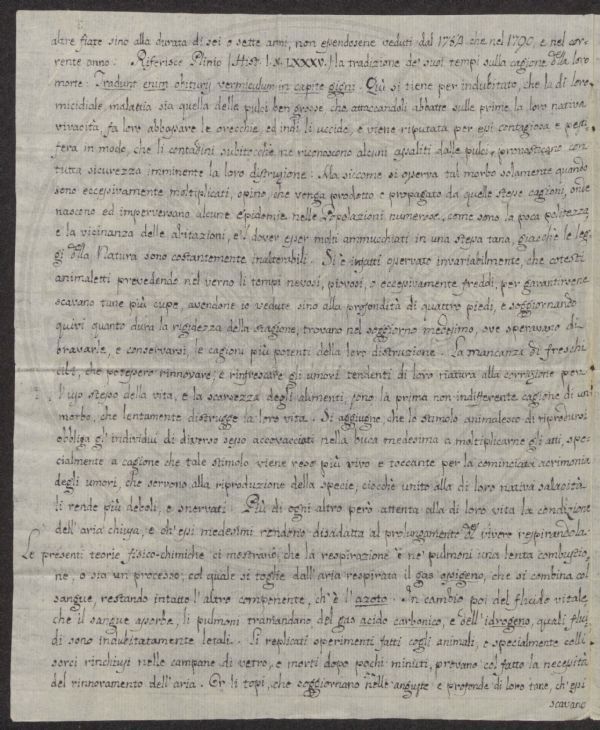 altre fiate sino alla durata di sei o sette anni, non essendosene veduti dal 1784 che nel 1790, e nel cor-
rente anno. Riferisce Plinio (Hist. l. X. LXXXV.) la tradizione de' suoi tempi sulla cagione della loro
morte: Tradunt enim obituris vermiculum in capite gigni. Quì si tiene per indubitato, che la di loro
micidiale malattia sia quella delle pulci ben grosse che attaccandoli abbatte sulle prime la loro nativa
vivacità, fa loro abbassare le orecchie, ed indi li uccide, e viene riputata per essi contagiosa e pesti-
fera in modo, che li contadini subitocchè ne riconoscono alcuni assaliti dalle pulci, pronosticano con
tutta sicurezza imminente la loro distruzione. Ma siccome si osserva tal morbo solamente quando
sono eccessivamente moltiplicati, opino, che venga prodotto e propagato da quelle stesse cagioni, onde
nascono ed imperversano alcune epidemie nelle Popolazioni numerose, come sono la poca politezza
e la vicinanza delle abitazioni, e 'l dover esser molti ammucchiati in una stessa tana, giacchè le leg-
gi della Natura sono costantemente inalterabili. Si è infatti osservato invariabilmente, che cotesti
animaletti prevedendo nel verno li tempi nevosi, piovosi, o eccessivamente freddi, per garantirvene
scavano tane più cupe, avendone io vedute sino alla profondità di quattro piedi, e soggiornando
quivi quanto dura la rigidezza della stagione, trovano nel soggiorno medesimo, ove speravano di
bravarle, e conservarsi, le cagioni più potenti della loro distruzione. La mancanza di freschi
cibi, che potessero rinnovare, e rinfrescare gli umori tendenti di loro natura alla corruzione per
l'uso stesso della vita, e la scarsezza degli alimenti, sono la prima non indifferente cagione di un
morbo, che lentamente distrugge la loro vita. Si aggiugne, che lo stimolo animalesco di riprodursi
obbliga gl' individui di diverso sesso accovacciati nella buca medesima a moltiplicarne gli atti, spe-
cialmente a cagione che tale stimolo viene reso più vivo e toccante per la cominciata acrimonia
degli umori, che servono alla riproduzione della specie, ciocchè unito alla di loro nativa salacità
li rende più deboli, e snervati. Più di ogni altro però attenta alla di loro vita la condizione
dell' aria chiusa, e ch' essi medesimi rendono disadatta al prolungamento del vivere respirandola.
Le presenti teorie fisico-chimiche ci mostrano, che la respirazione è ne' pulmoni una lenta combustio-
ne, o sia un processo, col quale si toglie dall' aria respirata il gas ossigeno, che si combina col
sangue, restando intatto l' altro componente, ch' è l' azoto. In cambio poi del fluido vitale,
che il sangue assorbe, li pulmoni tramandano del gas acido carbonico, e dell' idrogeno, quali flui-
di sono indubitatamente letali. Li replicati sperimenti fatti cogli animali, e specialmente colli
sorci rinchiusi nelle campane di vetro, e morti dopo pochi minuti, provano col fatto la necessità
del rinnovamento dell' aria. Or li topi, che soggiornano nelle anguste e profonde di loro tane, ch' essi
scavano